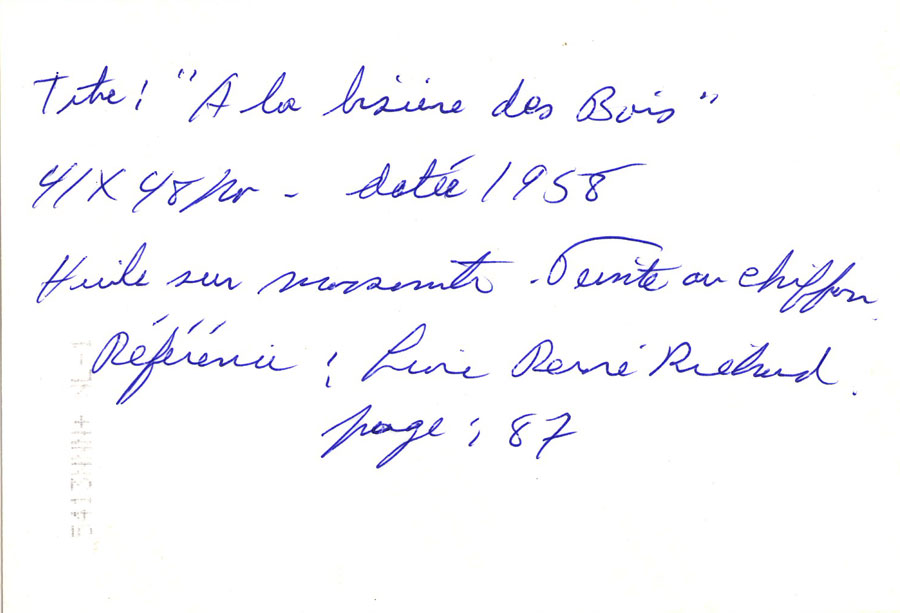 Titre : "A la lisière des Bois"
41 X 48 po - datée 1958
Huile sur masonite - Peinte au chiffon
Référence : Livre René Richard.
page : 87